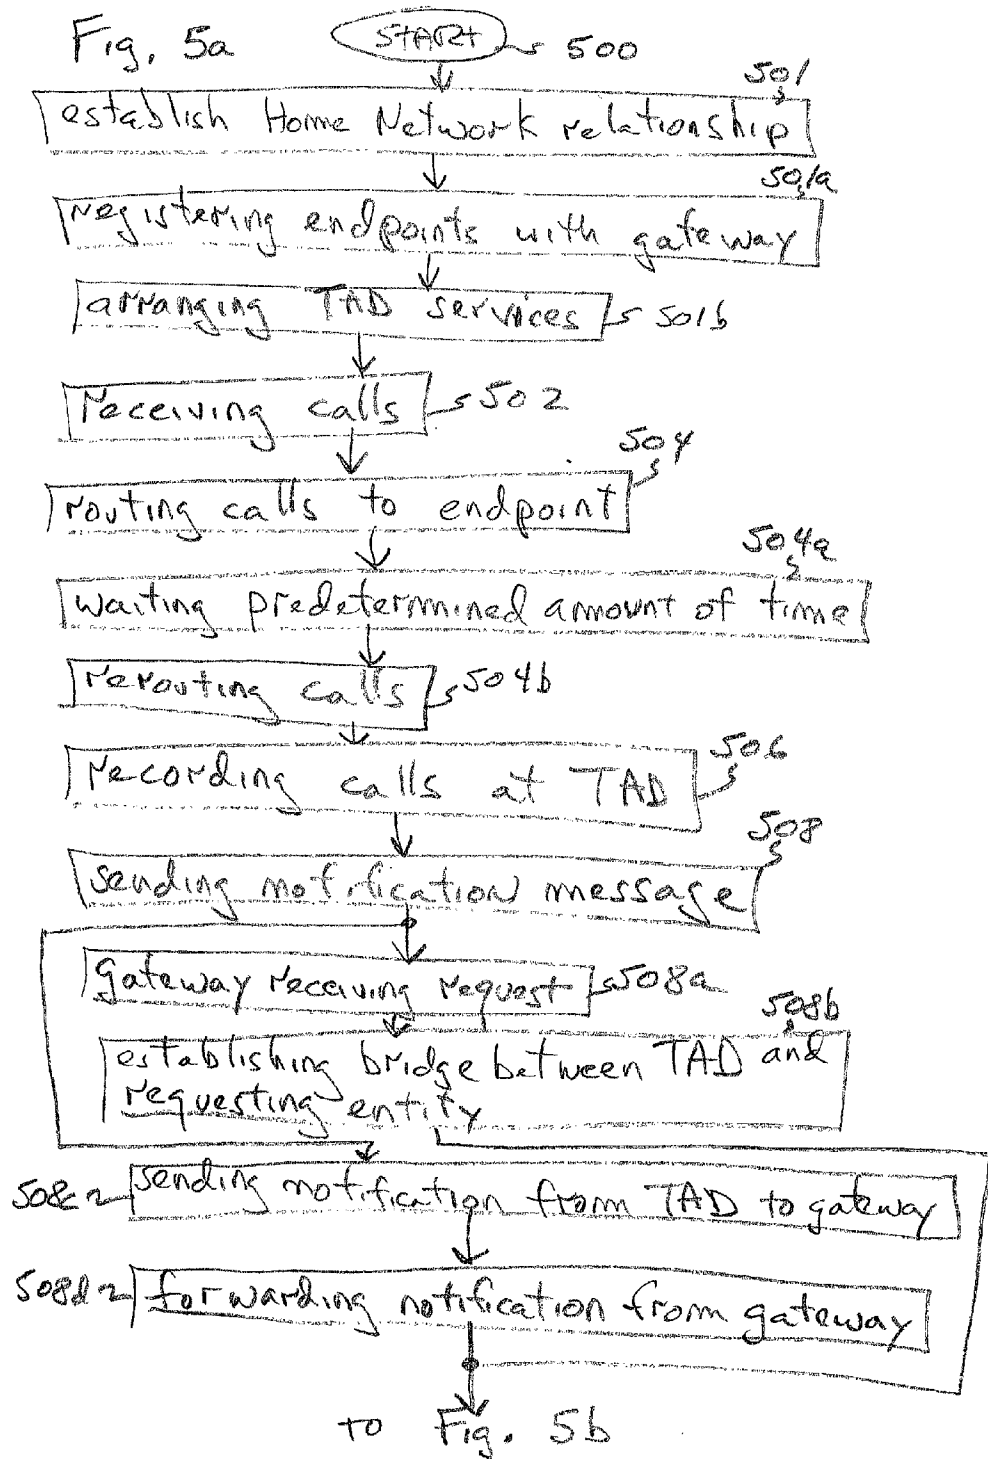 Fig. 5a
START 500
501
establish Home Network relationship
501a
registering endpoints with gateway
arranging TAD services 501b
receiving calls 502
504
routing calls to endpoint
504a
waiting predetermined amount of time
rerouting calls 504b
506
recording calls at TAD
508
sending notification message
gateway receiving request 508a
508b
establishing bridge between TAD and
requesting entity
508c sending notification from TAD to gateway
508d forwarding notification from gateway
to Fig. 5b